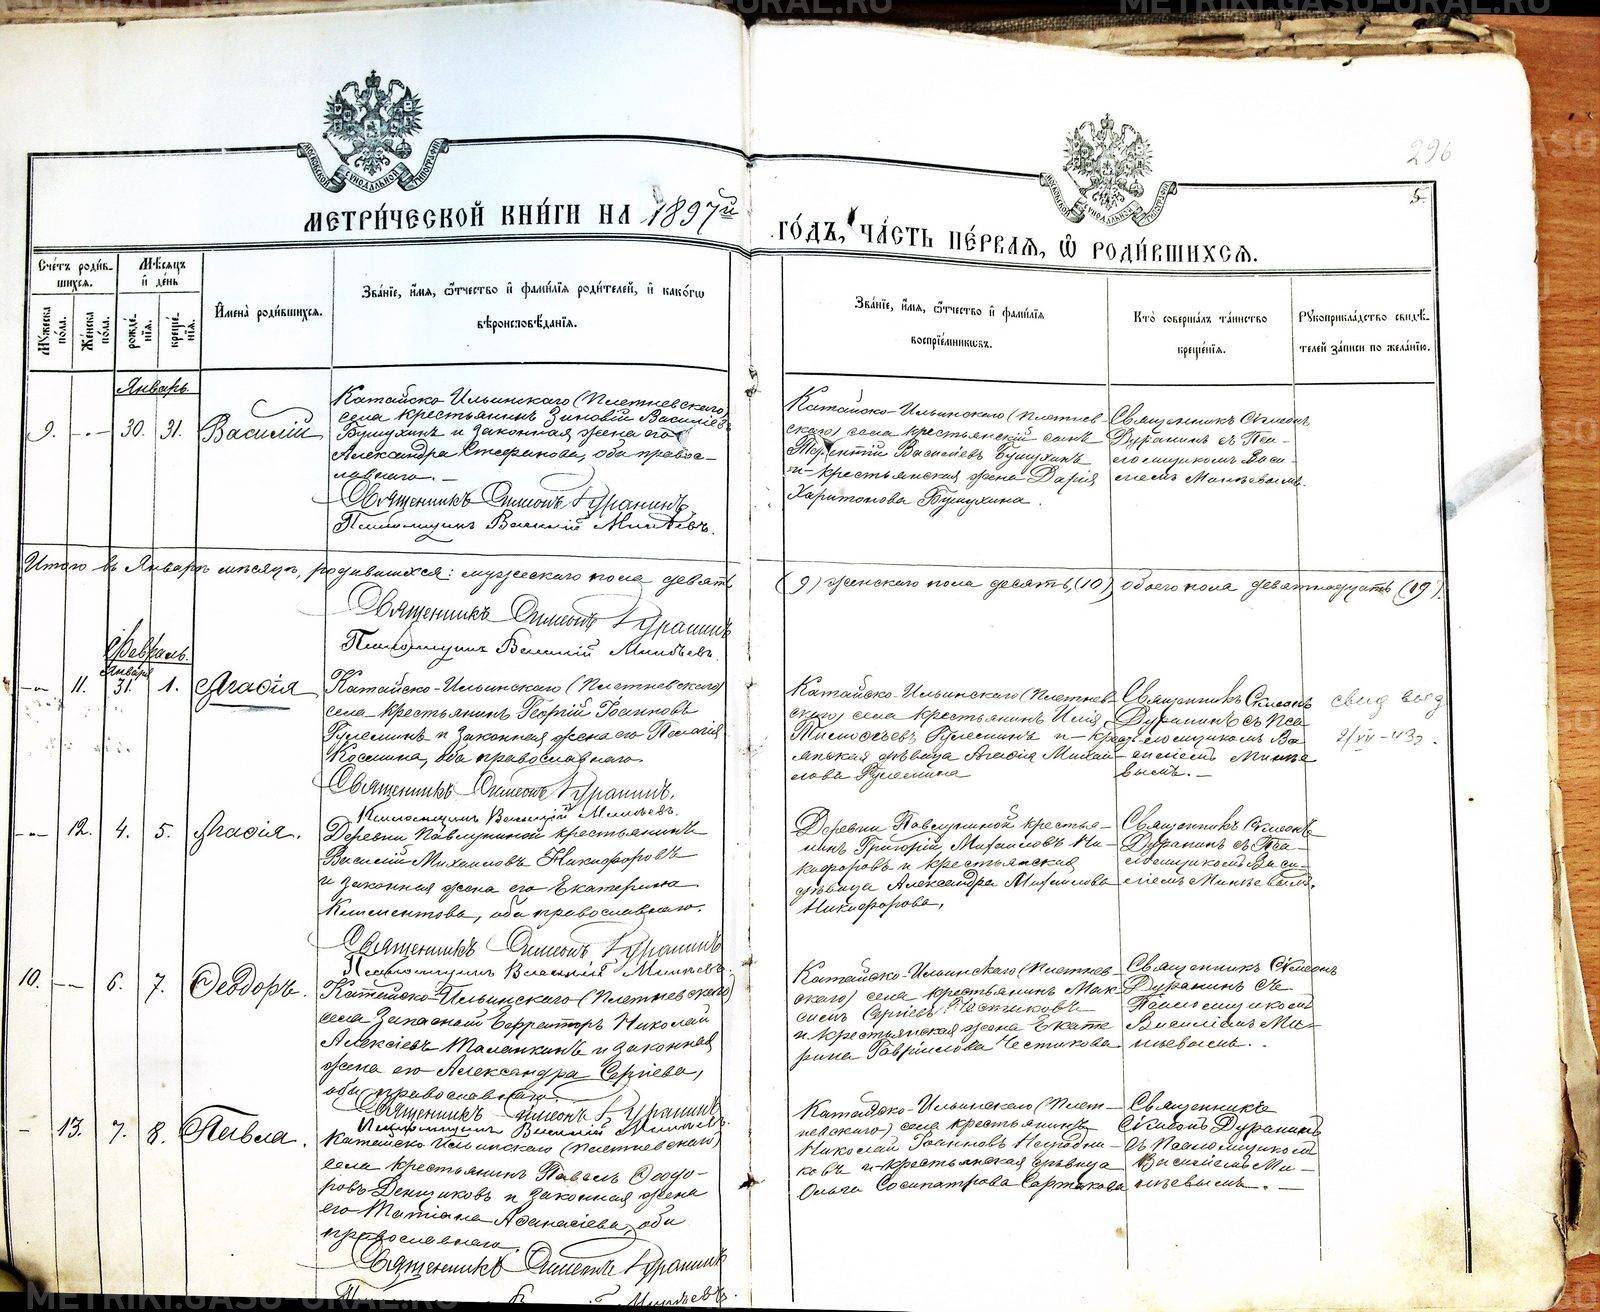 METRIKI.GASO-URAL.RU
METRIKI.GASO-URAL.RU
296
5.
МОСКОВСКОЙ СѴНОДАЛЬНОЙ ТИПОГРАФІИ
МОСКОВСКОЙ СѴНОДАЛЬНОЙ ТИПОГРАФІИ
МЕТРИ́ЧЕСКОЙ КНИ́ГИ НА 1897й
ГО́ДЪ, ЧА́СТЬ ПЕ́РВАЯ, Ѽ РОДИ́ВШИХСЯ.
Сче́тъ роди́в-
шихся.
Мѣсяцъ
и де́нь
Мꙋжеска
по́ла.
Же́нска
по́ла.
рожде́-
нїя.
креще́-
нїя.
Имена̀ роди́вшихся.
Зва́нїе, и́мя, ѻ҆́тчество и фами́лїя роди́телей, и како́гѡ
вѣроисповѣ́данїя.
Зва́нїе, и́мя, ѻ҆́тчество и фами́лїя
воспрїе́мниковъ.
Кто̀ соверша́лъ та́инство
креще́нїя.
Рꙋкоприкла́дство свидѣ́-
телей за́писи по жела́нїю.
Январь.
9. -.- 30. 31. Василій
Катайско-Ильинскаго (Плетневскаго)
села крестьянинъ Зиновій Василіевъ
Бушухинъ и законная жена его
Александра Стефанова, оба правос-
лавнаго. -
Священникъ Симеонъ Дуранинъ
Псаломщикъ Василій Минѣевъ.
Катайско-Ильинскаго (Плетнев-
скаго) села крестьянскій сынъ
Василіевъ Бушухинъ
и крестьянская жена Дарія
Харитонова Бушухина.
Священникъ Симеонъ
Дуранинъ съ Пса-
ломщикомъ Васи-
ліемъ Минѣевымъ.
Итого въ Январѣ мѣсяцѣ, родившихся: мужескаго пола девять
(9) женскаго пола десять (10), обоего пола девятнадцать (19).
Священникъ Симеонъ Дуранинъ
Псаломщикъ Василій Минѣевъ.
Февраль.
Января
-"- 11. 31. 1. Агафія
Катайско-Ильинскаго (Плетневскаго)
села крестьянинъ Георгій Іоанновъ
и законная жена его Пелагія
Косьмина, оба православнаго.
Священникъ Симеонъ Дуранинъ.
Псаломщикъ Василій Минѣевъ.
Катайско-Ильинскаго (Плетнев-
скаго) села крестьянинъ Илія
Тимофѣевъ и крест-
янская дѣвица Агафія Михаи-
лова
Священникъ Симеонъ
Дуранинъ съ Пса-
ломщикомъ Ва-
силіемъ Минѣе-
вымъ. -
свид выд
2/VII-43г.
-"- 12. 4. 5. Агафія.
Деревни Павлуниной крестьянинъ
Василій Михаиловъ Никифоровъ
и законная жена его Екатерина
Климентова, оба православнаго.
Священникъ Симеонъ Дуранинъ
Псаломщикъ Василій Минѣевъ.
Деревни Павлуниной крестья-
нинъ Григорій Михаиловъ Ни-
кифоровъ и крестьянская
дѣвица Александра Михаилова
Никифорова,
Священникъ Симеонъ
Дуранинъ съ Пса-
ломщикомъ Васи-
ліемъ Минѣевымъ.
10. -- 6. 7. Ѳеодоръ.
Катайско-Ильинскаго (Плетневскаго)
села Запасный Ефрейторъ Николай
Алексіевъ Таланкинъ и законная
жена его Александра Сергіева,
оба православнаго.
Священникъ Симеонъ Дуранинъ
Псаломщикъ Василій Минѣевъ.
Катайско-Ильинскаго (Плетнев-
скаго) села крестьянинъ Мак-
симъ Сергіевъ Честиковъ
и крестьянская жена Екате-
рина Гавріилова Честикова
Священникъ Симеонъ
Дуранинъ съ
Псаломщикомъ
Василіемъ Ми-
нѣевымъ. .
- 13. 7. 8. Павла.
Катайско-Ильинскаго (Плетневскаго)
села крестьянинъ Павелъ Ѳеодо-
ровъ Денщиковъ и законная жена
его Татіана Аѳанасіева, оба
православнаго.
Священникъ Симеонъ Дуранинъ
Катайско-Ильинскаго (Плет-
невскаго) села крестьянинъ
Николай Іоанновъ
и крестьянская дѣвица
Ольга Сосипатрова Сартакова
Священникъ
Симеонъ Дуранинъ
съ Псаломщикомъ
Василіемъ Ми-
нѣевымъ. -
METRIKI.GASO-URAL.RU
METRIKI.GASO-URAL.RU